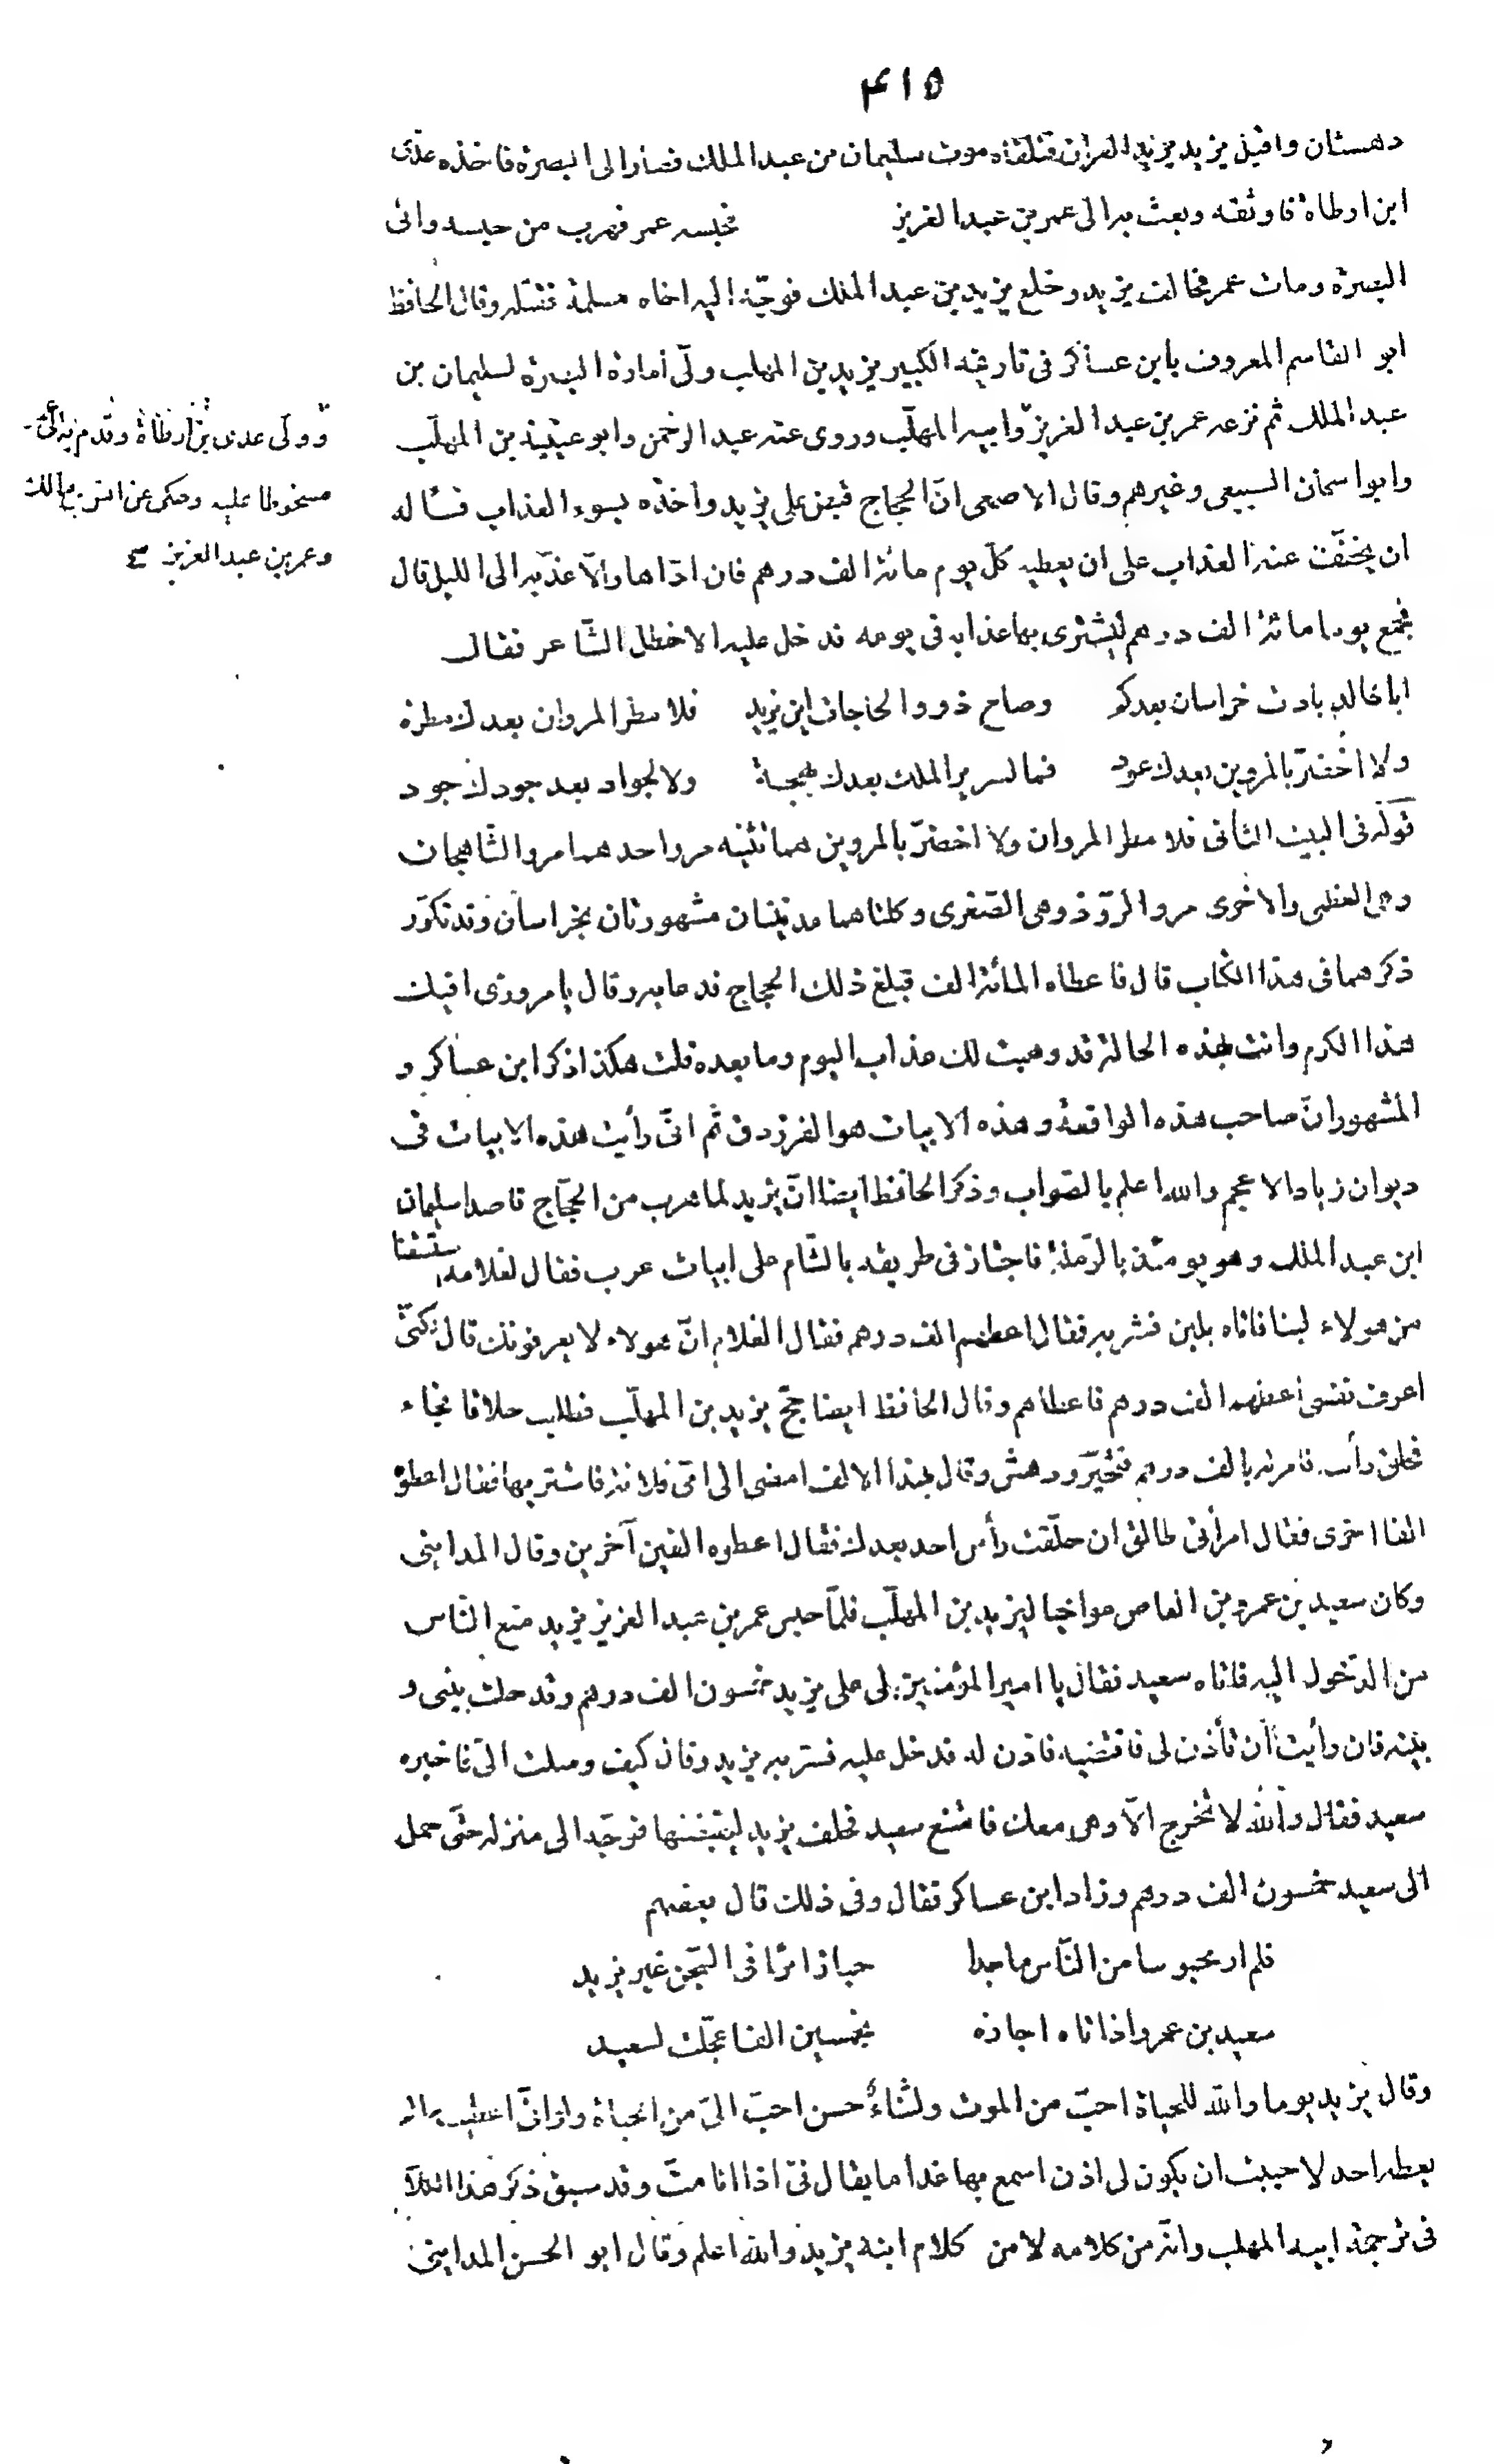 ٤١٥
دهستان واقبل يزيد يريد العراق فتلقاه موت سليمان بن عبد الملك فصار الى البصرة فاخذه عدى
ابن ارطاة فاوثقه وبعث به الى عمر بن عبد العزيز فحبسه عمر فهرب من حبسه واتى
البصرة ومات عمر فخالف يزيد وخلع يزيد بن عبد الملك فوجّه اليه اخاه مسلمة فقتله وقال الحافظ
ابو القاسم المعروف بابن عساكر فى تاريخه الكبير يزيد بن المهلب ولّى امارة البصرة لسليمان بن
عبد الملك ثم نزعه عمر بن عبد العزيز وابيه المهلّب وروى عنه عبد الرحمن وابو عيينة بن المهلّب
وولّى عدى بن ارطاة وقدم به على
مسخوطا عليه وحكى عن انس بن مالك
وعمر بن عبد العزيز
وابو اسحاق السبيعى وغيرهم وقال الاصمعى انّ الحجاج قبض على يزيد واخذه بسوء العذاب فسأله
ان يخفّف عنه العذاب على ان يعطيه كلّ يوم مائة الف درهم فان ادّاها والّا عذّبه الى الليل قال
فجمع يوما مائة الف درهم ليشترى بها عذابه فى يومه فدخل عليه الاخطل الشّاعر فقال
ابا خالد بادت خراسان بعدكم وصاح ذوو الحاجات اين يزيد فلا مطر المروان بعدك مطرة
ولا اخضرّ بالمروين بعدك عود فما لسرير الملك بعدك بهجة ولا لجواد بعد جودك جود
قوله فى البيت الثانى فلا مطر المروان ولا اخضرّ بالمروين هما تثنيه مرو احدهما مرو الشّاهجان
وهى العظمى والاخرى مرو الرّوذ وهى الصّغرى وكلتاهما مدينتان مشهورتان بخراسان وقد تكرّر
ذكرهما فى هذا الكتاب قال فاعطاه المائة الف فبلغ ذلك الحجاج فدعا به وقال يا مروزى افيك
هذا الكرم وانت بهذه الحالة قد وهبت لك عذاب اليوم وما بعده قلت هكذا ذكر ابن عساكر و
المشهور انّ صاحب هذه الواقعة وهذه الابيات هو الفرزدق ثم انّى رأيت هذه الابيات فى
ديوان زياد الاعجم والله اعلم بالصّواب وذكر الحافظ ايضا انّ يزيد لما هرب من الحجّاج قاصدا سليمان
ابن عبد الملك وهو يومئذ بالرّملة فاجتاز فى طريقه بالشّام على ابيات عرب فقال لغلامه استسقنا
من هولاء لبنا فاتاه بلبن فشربه فقال اعطهم الف درهم فقال الغلام انّ هولاء لا يعرفونك قال لكنّى
اعرف نفسى اعطهم الف درهم فاعطاهم وقال الحافظ ايضا حجّ يزيد بن المهلّب فطلب حلاقا فجاء
فحلق رأسه فامر له بالف درهم فتحيّر ودهش وقال بهذا الالف امضى الى امّى فلانة فاشتريها فقال اعطوه
الفا اخرى فقال امرأتى طالق ان حلّقت رأس احد بعدك فقال اعطوه الفين آخرين وقال المداينى
وكان سعيد بن عمرو بن العاص مواخيا ليزيد بن المهلّب فلمّا حبس عمر بن عبد العزيز يزيد منع النّاس
من الدّخول اليه فاتاه سعيد فقال يا امير المؤمنين لى على يزيد خمسون الف درهم وقد حلت بينى و
بينه فان رأيت ان تأذن لى فاقتضيه فاذن له فدخل عليه فسر به يزيد وقال كيف وصلت الىّ فاخبره
سعيد فقال والله لا تخرج الّا وهى معك فامتنع سعيد فحلف يزيد ليقبضنها فوجّه الى منزله حتّى حمل
الى سعيد خمسون الف درهم وزاد ابن عساكر فقال وفى ذلك قال بعضهم
فلم ار محبوسا من النّاس ماجدا حبا زائرا فى السّجن غير يزيد
سعيد بن عمرو اذ اتاه اجازه بخمسين الفا عجّلت لسعيد
وقال يزيد يوما والله للحياة احبّ من الموت ولثناء حسن احبّ الىّ من الحياة ولو انّى اعطيت ما لم
يعطه احد لاحببت ان يكون لى اذن اسمع بها غدا ما يقال فىّ اذا انا متّ وقد سبق ذكر هذا الكلام
فى ترجمة ابيه المهلب وانّه من كلامه لا من كلام ابنه يزيد والله اعلم وقال ابو الحسن المداينى